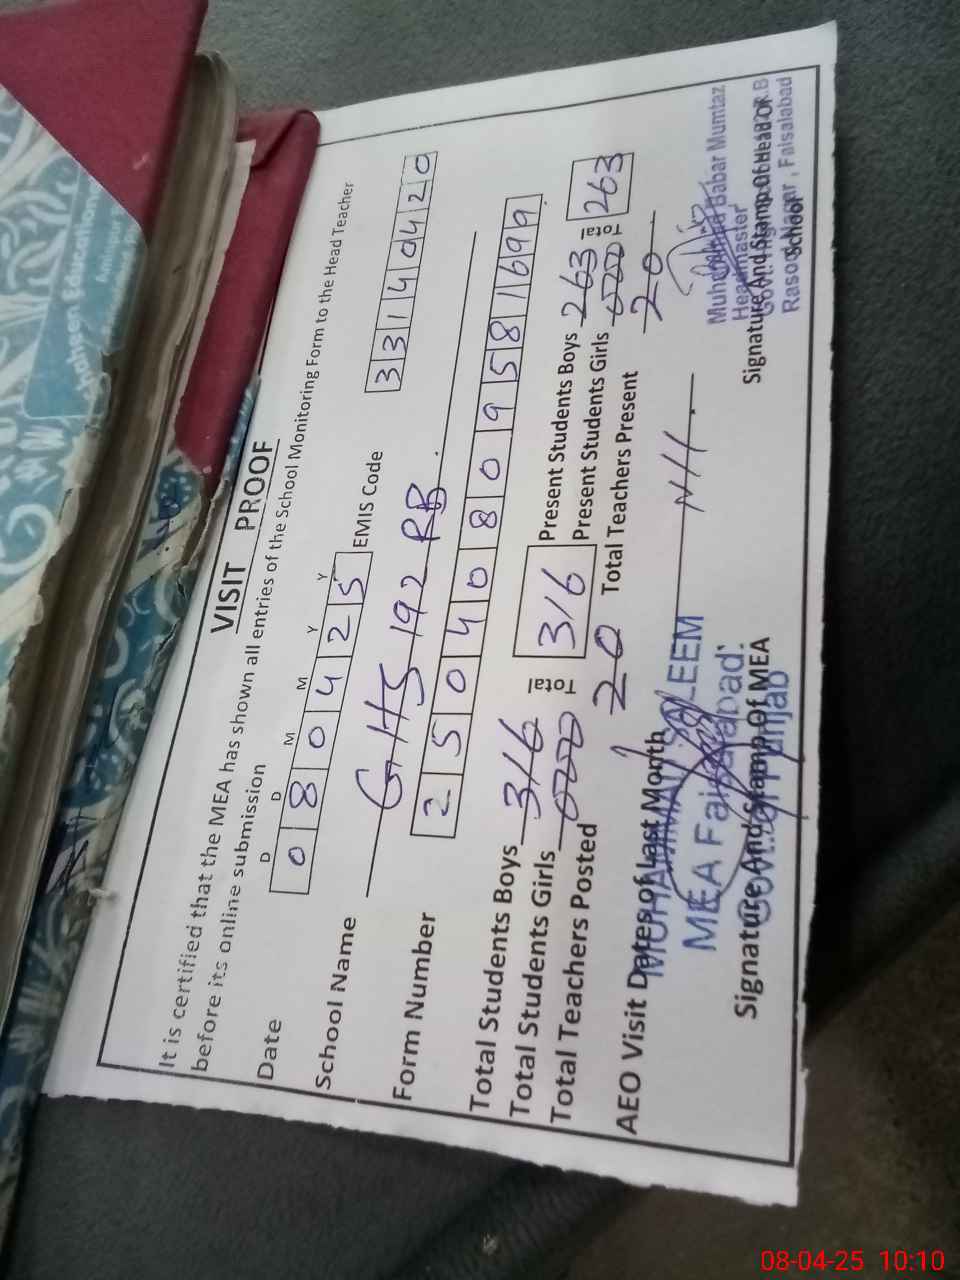 VISIT PROOF
It is certified that the MEA has shown all entries of the School Monitoring Form to the Head Teacher
before its online submission
D D M M Y Y
Date 0 8 0 4 2 5 EMIS Code 3 3 1 4 0 4 2 0
School Name GHS 192 RB.
Form Number 2 5 0 4 0 8 0 9 5 8 1 6 9 9
Total Students Boys 316 Total 316 Present Students Boys 263 Total 263
Total Students Girls 000 Present Students Girls 000
Total Teachers Posted 20 Total Teachers Present 20
AEO Visit Dates of Last Month Nil
MUHAMMAD SALEEM
MEA Faisalabad.
Govt. of Punjab
Signature And Stamp Of MEA
Muhammad Babar Mumtaz
Headmaster
Govt. High R.B
Rasool Nagar, Faisalabad
Signature And Stamp Of Head Of
School
08-04-25 10:10